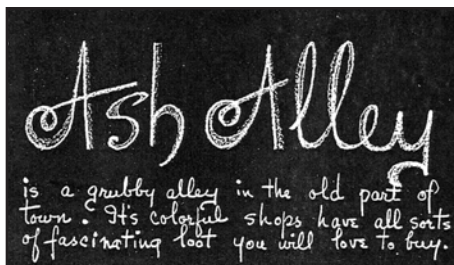 Ash Alley
is a grubby alley in the old part of
town. It's colorful shops have all sorts
of fascinating loot you will love to buy.